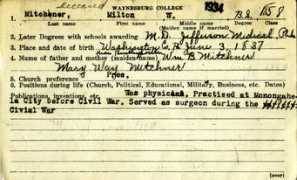 deceased WAYNESBURG COLLEGE 1934
1. Mitchener, Milton W. B.S. 1858
Last name First name Middle name Degree Class
2. Later Degrees with schools awarding M.D. Jefferson Medical
3. Place and date of birth Washington Co. Pa June 3, 1837
4. Name of father and mother (maiden name) Wm B Mitchener
Mary Way Mitchner
5. Church preference Pres.
6. Positions during life (Church, Political, Educational, Military, Business, etc. Dates)
Publications, inventions, etc. Was physician, Practised at Monongahe-
la City before Civil War. Served as surgeon during the
Civial War